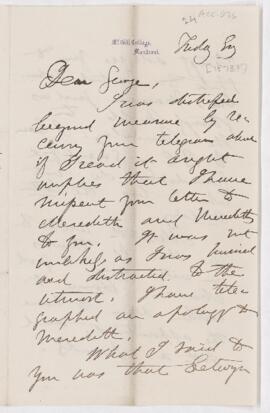 McGill College,
Montreal.
24
ACC-976
Friday Evg
[1873?]
Dear George,
I was distressed
beyond measure by re-
ceiving your telegram
if I read it aright
implies that I have
missent your letter to
Meredith and Meredith's
to you. It was not
as I was hurried
and distracted to the
utmost. I have tele-
graphed an apology to
Meredith.
What I said to
you was that